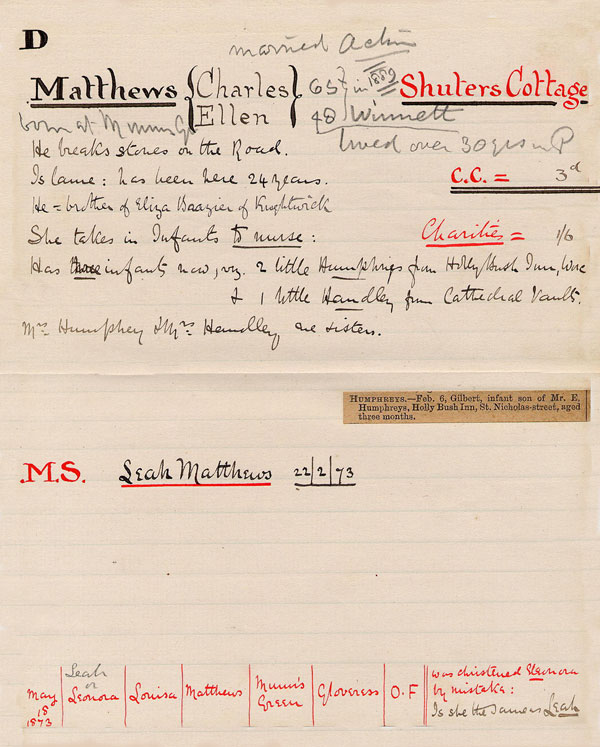 D
married
Matthews { Charles } 65 } in 1883 Shuters Cottage
Ellen 48 Winnett
born at Munns Gn lived over 30 yrs in P
He breaks stones on the Road.
C.C. = 3d
Is lame: has been here 24 years.
He = brother of Eliza of Knightwick
She takes in Infants to nurse:
Charities = 1/6
Has three infants now, viz. 2 little Humphries from Holly Bush Inn, Worc
& 1 little Handley from Cathedral Vault.
Mrs Humphrey & Mrs Handley are sisters.
HUMPHREYS.—Feb. 6, Gilbert, infant son of Mr. E.
Humphreys, Holly Bush Inn, St. Nicholas-street, aged
three months.
M.S. Leah Matthews 22/2/73
May 18 1873
Leah or Leonora
Louisa
Matthews
Munn's Green
Gloveress
O.F
was christened Eleonora
by mistake:
Is she the same as Leah